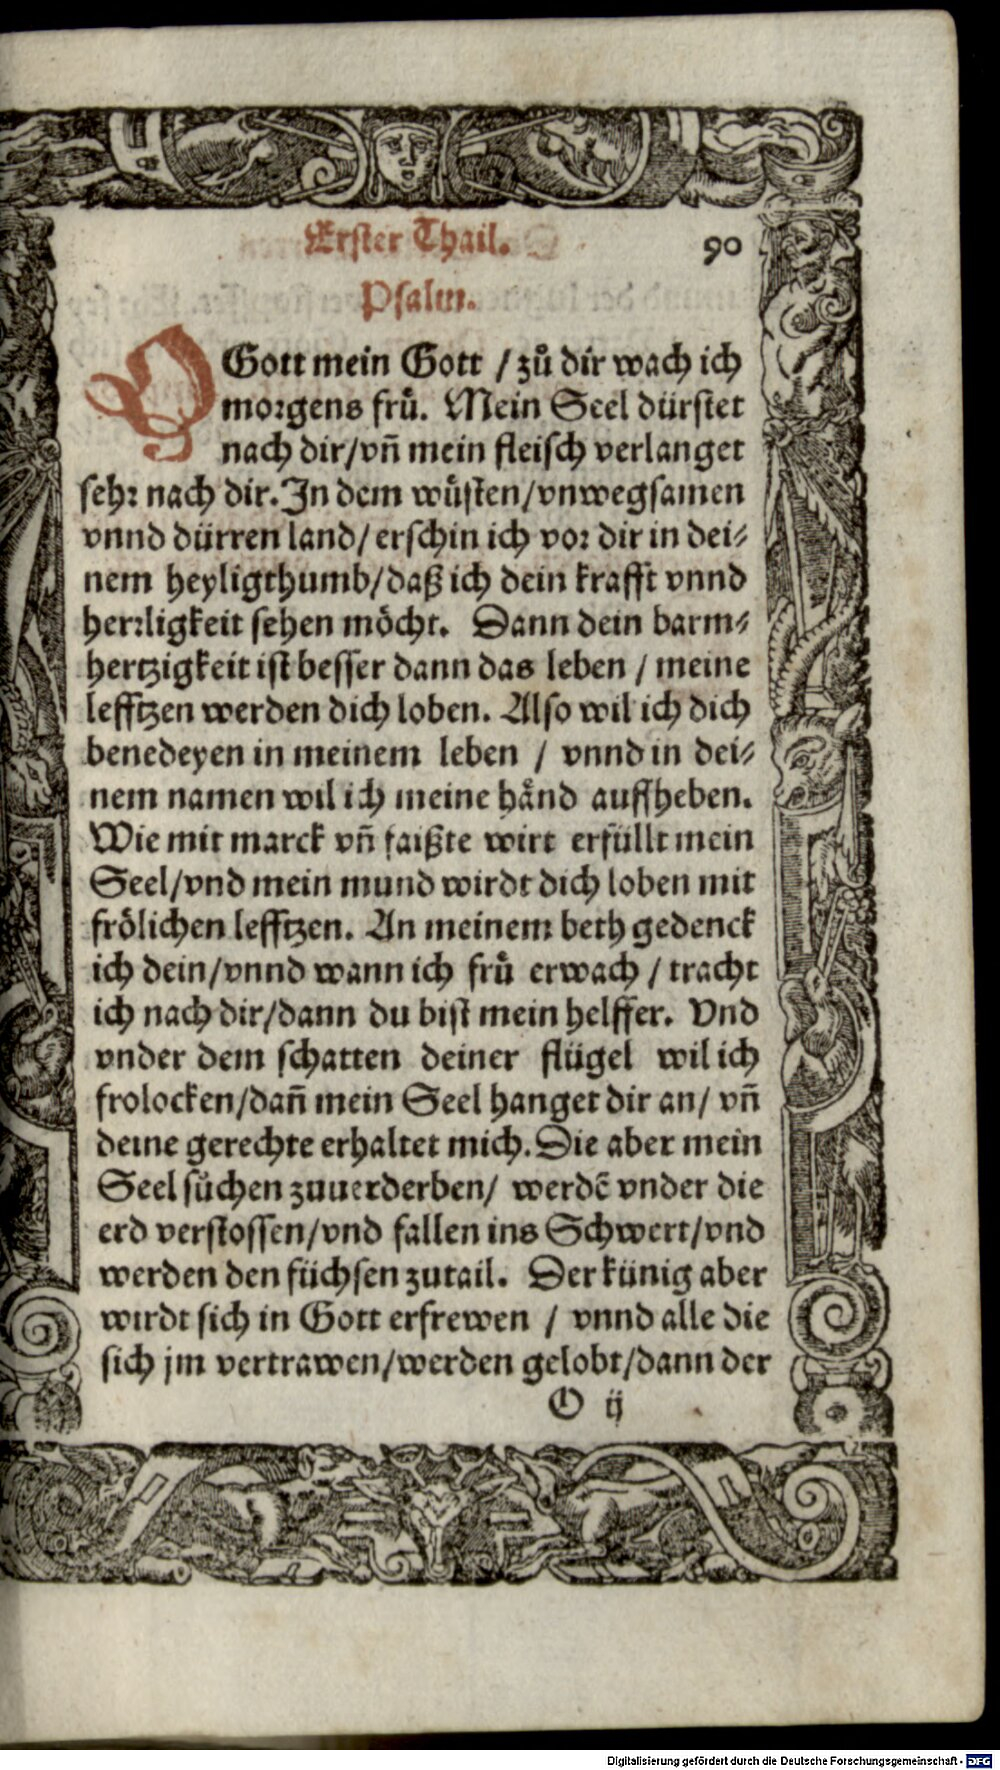 Erster Thail. 90
Psalm.
O Gott mein Gott / zů dir wach ich
morgens frů. Mein Seel dürstet
nach dir/vñ mein fleisch verlanget
sehr nach dir. In dem wůsten/vnwegsamen
vnnd dürren land/ erschin ich vor dir in dei⸗
nem heyligthumb/daß ich dein krafft vnnd
herrligkeit sehen möcht. Dann dein barm⸗
hertzigkeit ist besser dann das leben / meine
lefftzen werden dich loben. Also wil ich dich
benedeyen in meinem leben / vnnd in dei⸗
nem namen wil ich meine hånd auffheben.
Wie mit marck vñ faißte wirt erfüllt mein
Seel/vnd mein mund wirdt dich loben mit
frölichen lefftzen. An meinem beth gedenck
ich dein/vnnd wann ich frů erwach / tracht
ich nach dir/dann du bist mein helffer. Vnd
vnder dem schatten deiner flügel wil ich
frolocken/dañ mein Seel hanget dir an/ vñ
deine gerechte erhaltet mich. Die aber mein
Seel sůchen zuuerderben/ werdẽ vnder die
erd verstossen/vnd fallen ins Schwert/vnd
werden den füchsen zutail. Der künig aber
wirdt sich in Gott erfrewen / vnnd alle die
sich jm vertrawen/werden gelobt/dann der
O ij
Digitalisierung gefördert durch die Deutsche Forschungsgemeinschaft - DFG